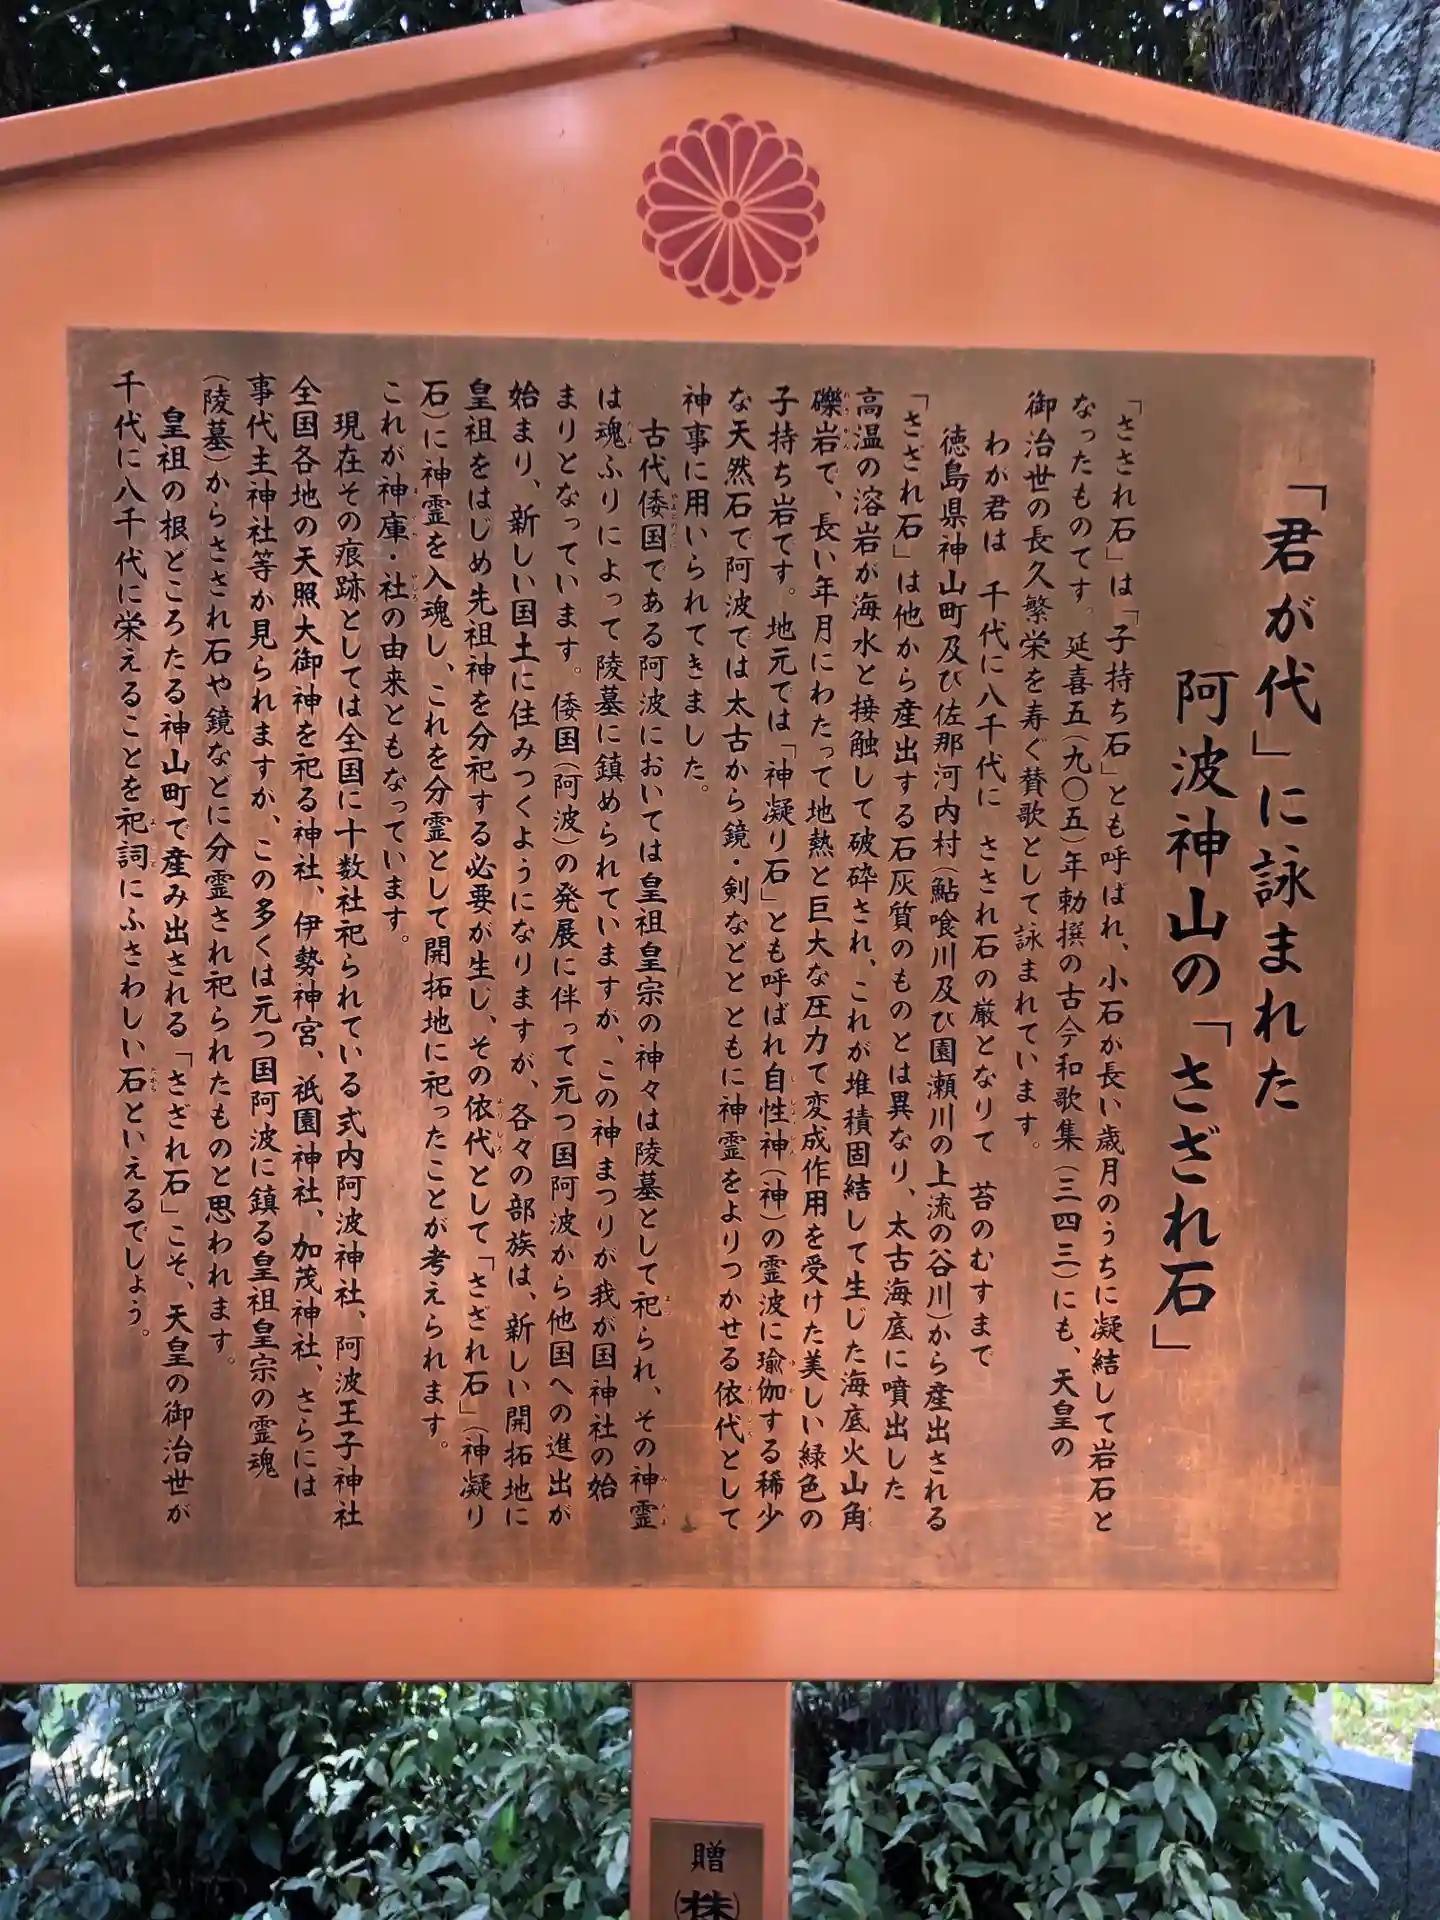 「君が代」に詠まれた
阿波神山の「さざれ石」
「さざれ石」は「子持ち石」とも呼ばれ、小石が長い歳月のうちに凝結して岩石と
なったものてす。延喜五(九〇五)年勅撰の古今和歌集(三四三)にも、天皇の
御治世の長久繁栄を寿ぐ賛歌として詠まれています。
わが君は　千代に八千代に　さざれ石の厳となりて　苔のむすまで
徳島県神山町及び佐那河内村(鮎喰川及ひ園瀬川の上流の谷川)から産出される
「さざれ石」は他から産出する石灰質のものとは異なり、太古海底に噴出した
高温の溶岩が海水と接触して破砕され、これが堆積固結して生じた海底火山角
礫岩で、長い年月にわたって地熱と巨大な圧力て変成作用を受けた美しい緑色の
子持ち岩てす。地元では「神凝り石」とも呼ばれ自性神(神)の霊波に瑜伽する稀少
な天然石て阿波では太古から鏡・剣などとともに神霊をよりつかせる依代として
神事に用いられてきました。
古代倭国である阿波においては皇祖皇宗の神々は陵墓として祀られ、その神霊
は魂ふりによって陵墓に鎮められていますが、この神まつりが我が国神社の始
まりとなっています。倭国(阿波)の発展に伴って元つ国阿波から他国への進出が
始まり、新しい国土に住みつくようになりますが、各々の部族は、新しい開拓地に
皇祖をはじめ先祖神を分祀する必要が生し、その依代として「さざれ石」(神凝り
石)に神霊を入魂し、これを分霊として開拓地に祀ったことが考えられます。
これが神庫・社の由来ともなっています。
現在その痕跡としては全国に十数社祀られている式内阿波神社、阿波王子神社
全国各地の天照大御神を祀る神社、伊勢神宮、祇園神社、加茂神社、さらには
事代主神社等か見られますか、この多くは元つ国阿波に鎮る皇祖皇宗の霊魂
(陵墓)からさざれ石や鏡などに分霊され祀られたものと思われます。
皇祖の根どころたる神山町で産み出される「さざれ石」こそ、天皇の御治世が
千代に八千代に栄えることを祀詞にふさわしい石といえるでしょう。
贈
㈱